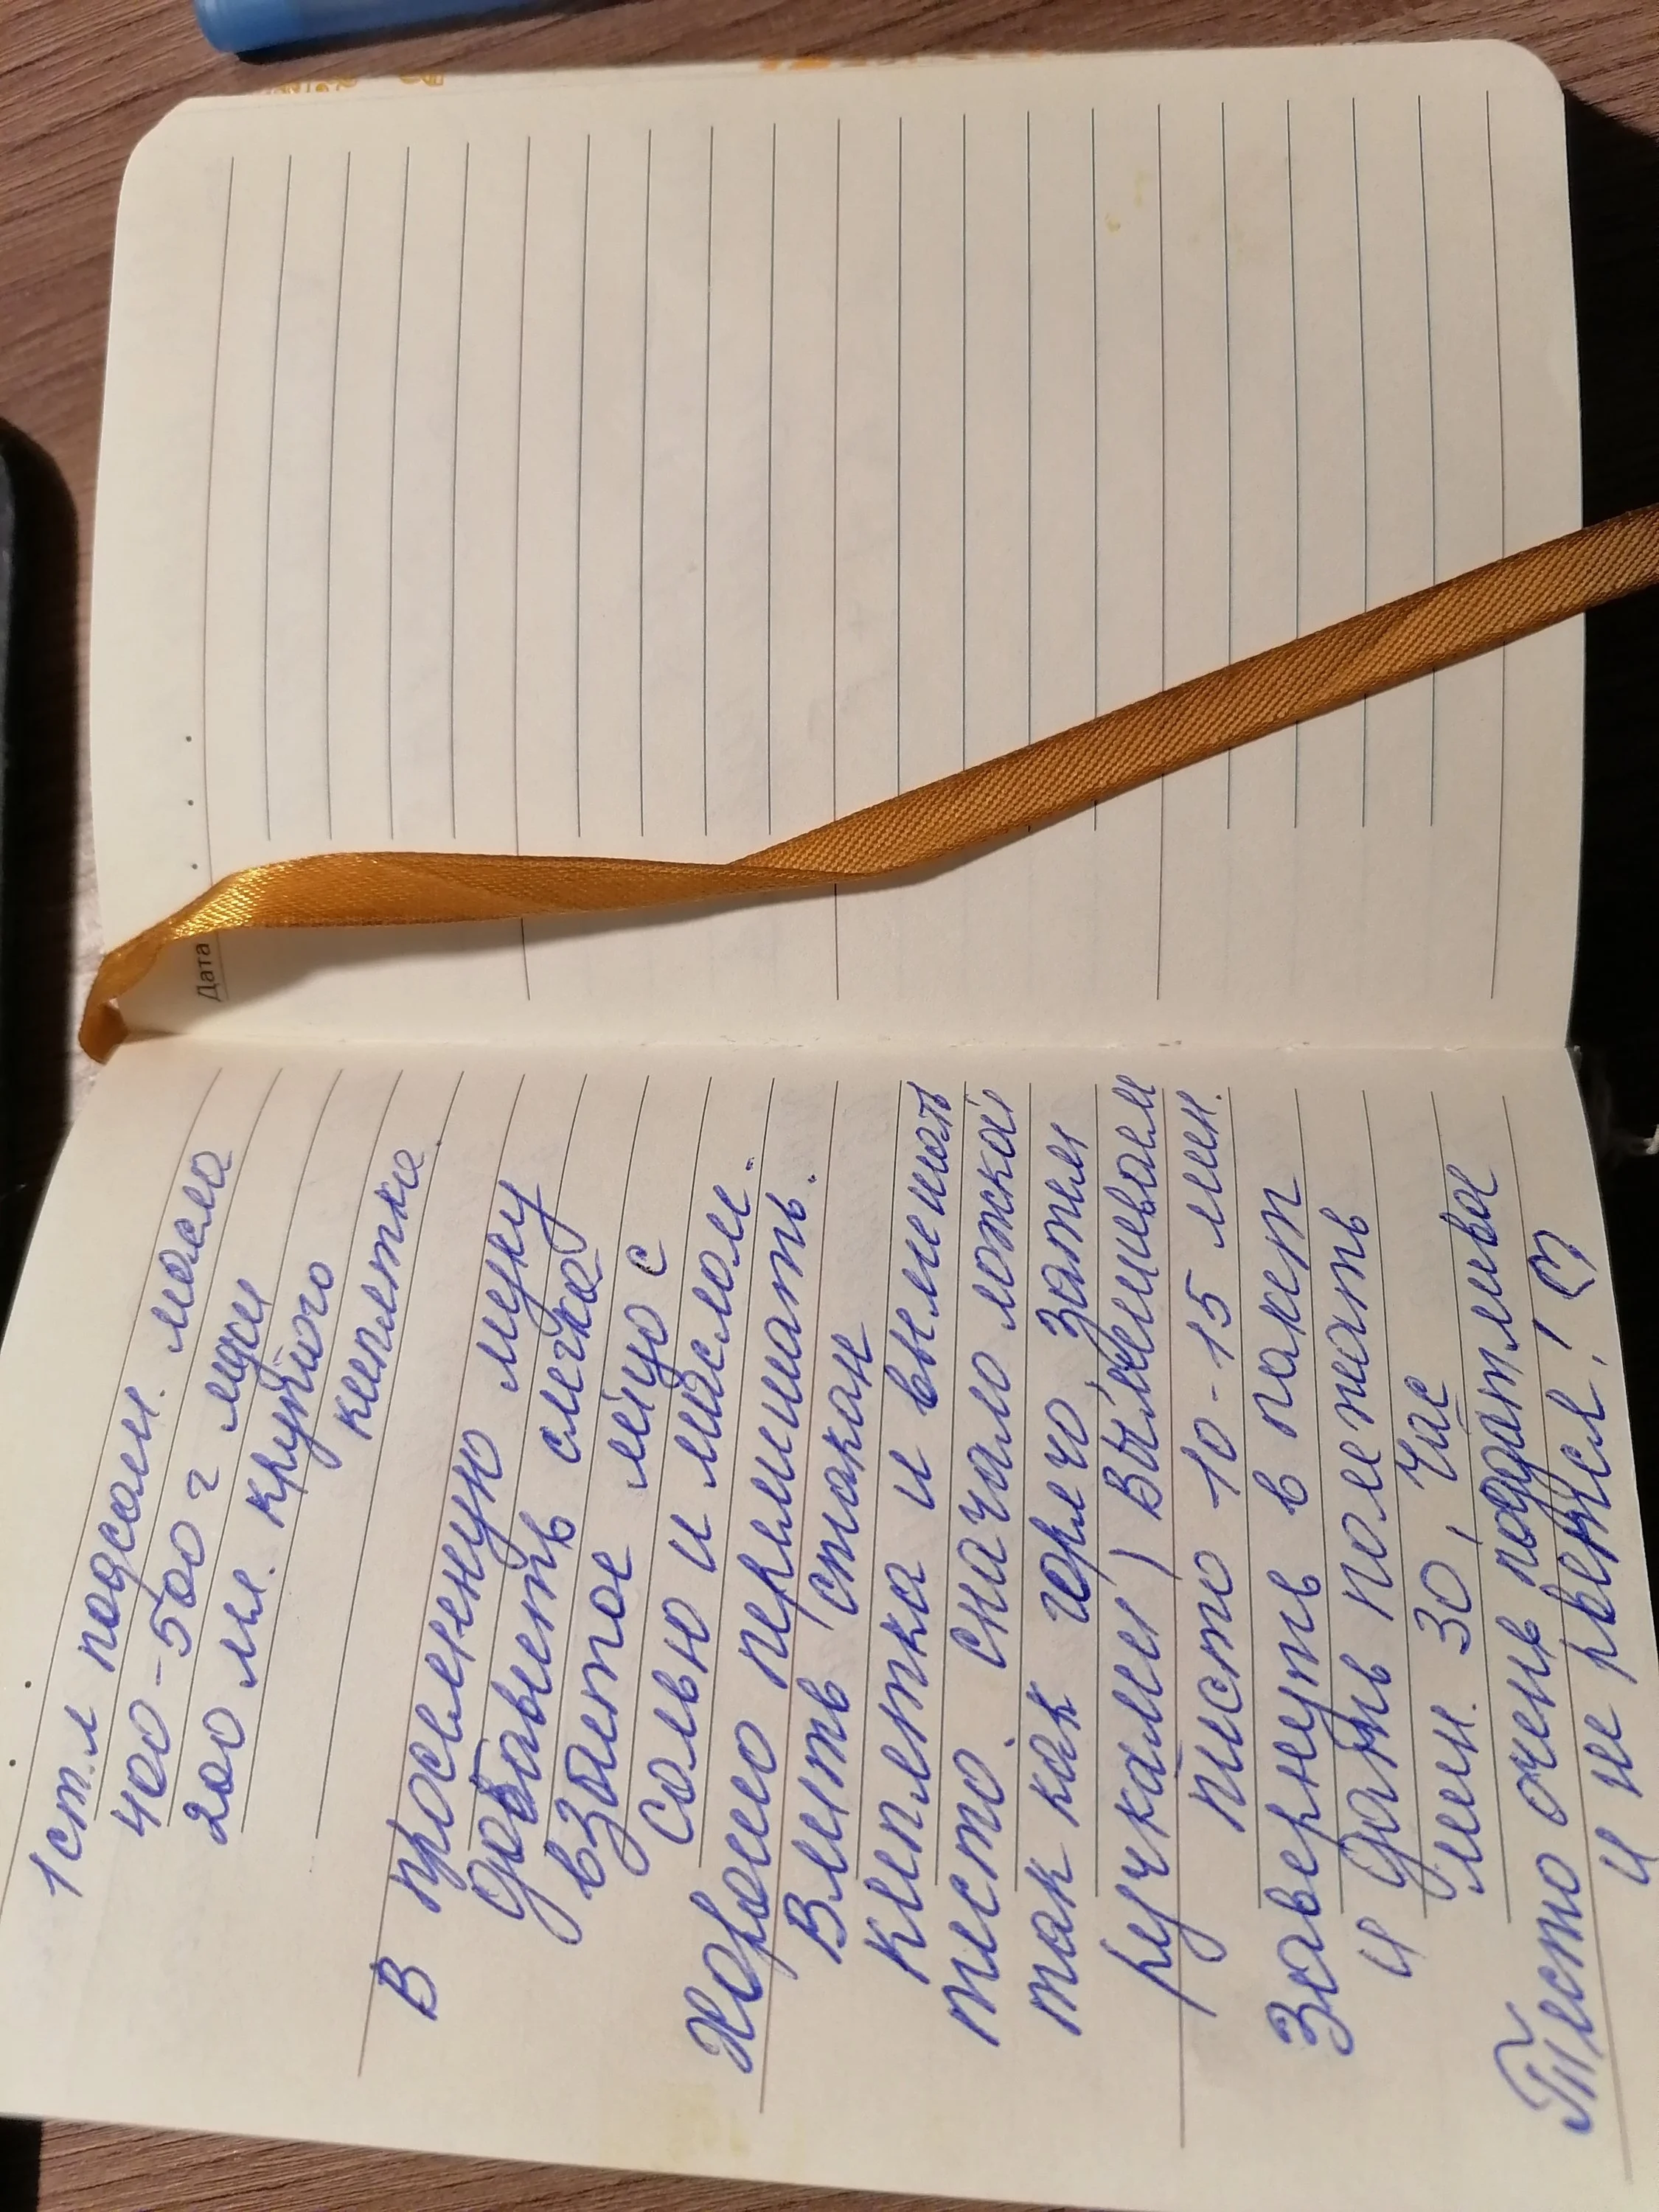 1 ст.л подсолн. масла
400-500 г муки
200 мл. крутого
кипятка
В просеенную муку
добавить слегка
взбитое яйцо с
солью и маслом.
Хорошо перемешать.
Влить стакан
кипятка и вымешать
тесто. сначало ложкой
так как горячо, затем
ручками) Вымешиваем
тесто 10-15 мин.
Завернуть в пакет
и дать полежать
мин. 30, час
Тесто очень податливое
и не рвётся! ♡
Дата